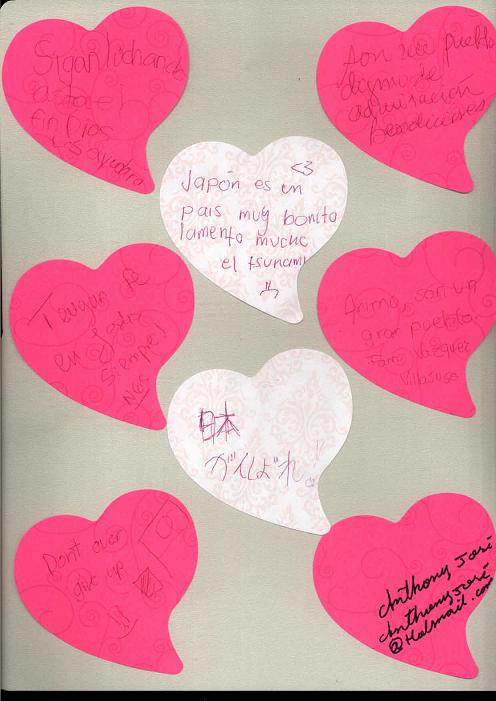 Sigan luchando
asta el
fin Dios
los ayudara
Son un pueblo
digno de
admiración
Bendiciones
<3
Japón es un
pais muy bonito
lamento mucho
el tsunami
Tengan fe
en Jesús
Siempre!
Animo, son un
gran pueblo.
Vázquez
Villalobos
日本
がんばれ。
Dont ever
give up
!!
Anthony José
Anthonyjosé
@Hotmail.com